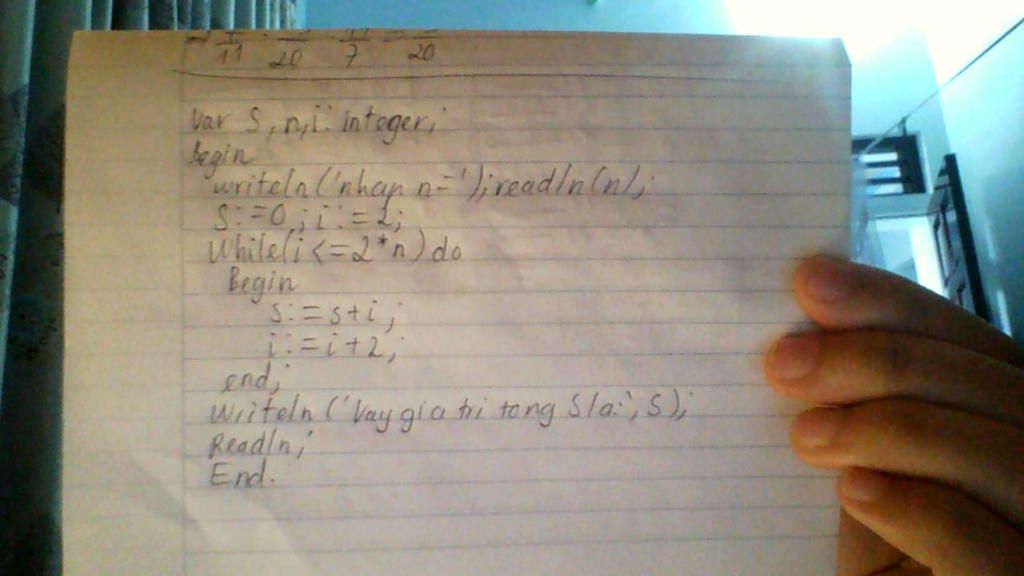 11 20 7 = 20
Var S, n, i: integer;
Begin
writeln('nhap n=');readln(n);
S:=0; i:=2;
While(i<=2*n) do
Begin
s:=s+i;
i:=i+2;
end;
Writeln('Vay gia tri tong S la:', S);
Readln;
End.